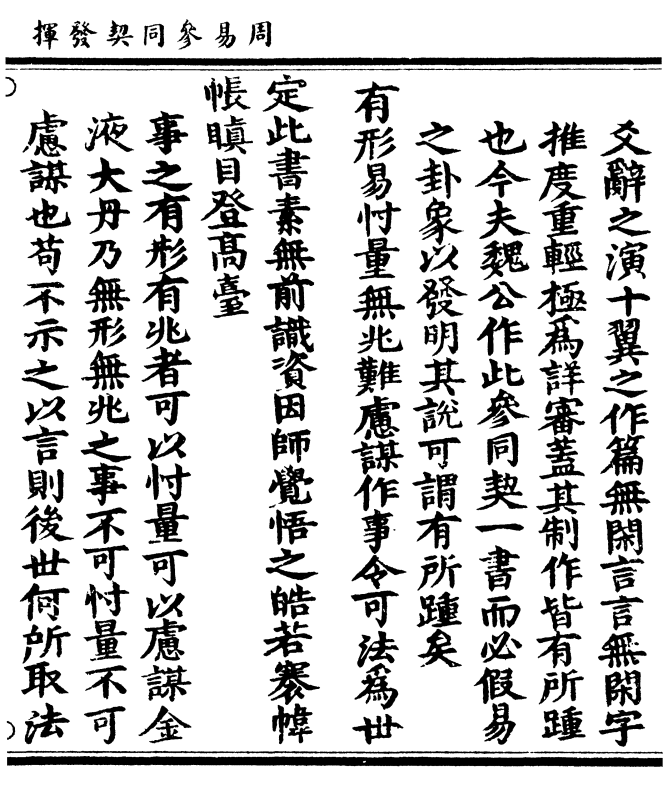 周易參同契發揮
爻辭之演十翼之作篇無閑言言無閑字
推度重輕極為詳審蓋其制作皆有所踵
也今夫魏公作此參同契一書而必假易
之卦象以發明其說可謂有所踵矣
有形易忖量無兆難慮謀作事令可法為世
定此書素無前識資因師覺悟之皓若褰幃
帳瞋目登高臺
事之有形有兆者可以忖量可以慮謀金
液大丹乃無形無兆之事不可忖量不可
慮謀也苟不示之以言則後世何所取法